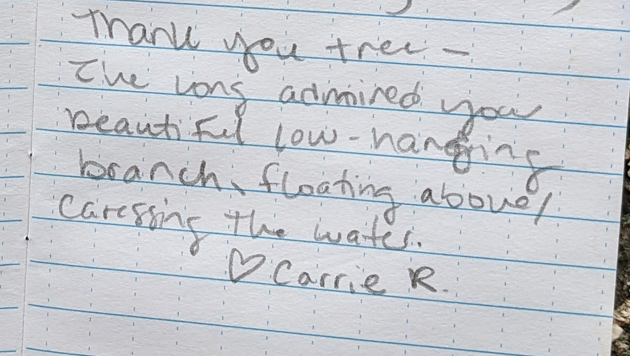 Thank you tree -
I've long admired your
beautiful low-hanging
branch, floating above/
caressing the water.
♡ Carrie R.